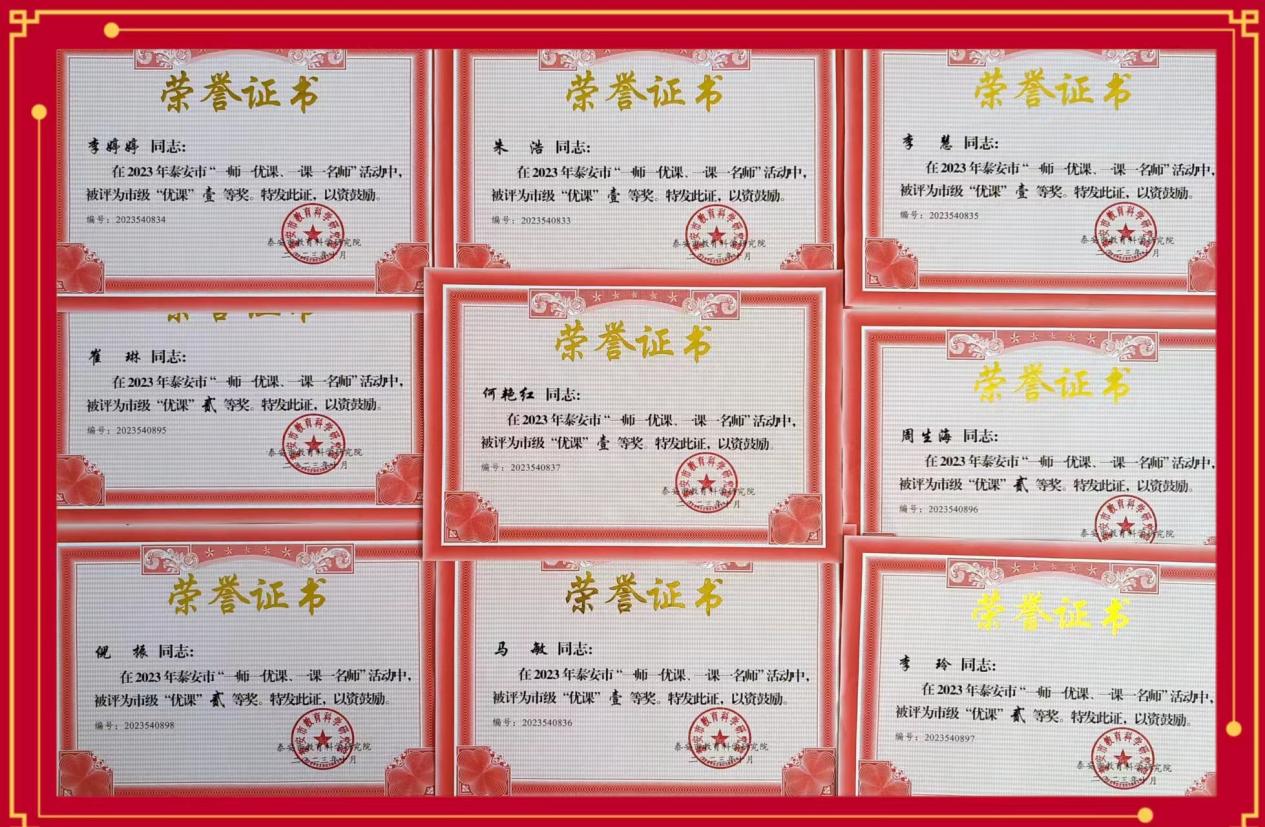 荣誉证书
李婷婷 同志:
在2023年泰安市“一师一优课、一课一名师”活动中,
被评为市级“优课”壹等奖。特发此证,以资鼓励。
编号:2023540834
泰安市教育科学研究院
二〇二三年十月
荣誉证书
朱 浩 同志:
在2023年泰安市“一师一优课、一课一名师”活动中,
被评为市级“优课”壹等奖。特发此证,以资鼓励。
编号:2023540833
泰安市教育科学研究院
二〇二三年十月
荣誉证书
李 慧 同志:
在2023年泰安市“一师一优课、一课一名师”活动中,
被评为市级“优课”壹等奖。特发此证,以资鼓励。
编号:2023540835
泰安市教育科学研究院
二〇二三年十月
荣誉证书
崔 琳 同志:
在2023年泰安市“一师一优课、一课一名师”活动中,
被评为市级“优课”贰等奖。特发此证,以资鼓励。
编号:2023540895
泰安市教育科学研究院
二〇二三年十月
荣誉证书
何艳红 同志:
在2023年泰安市“一师一优课、一课一名师”活动中,
被评为市级“优课”壹等奖。特发此证,以资鼓励。
编号:2023540837
泰安市教育科学研究院
二〇二三年十月
荣誉证书
周生海 同志:
在2023年泰安市“一师一优课、一课一名师”活动中,
被评为市级“优课”贰等奖。特发此证,以资鼓励。
编号:2023540896
泰安市教育科学研究院
荣誉证书
倪 振 同志:
在2023年泰安市“一师一优课、一课一名师”活动中,
被评为市级“优课”贰等奖。特发此证,以资鼓励。
编号:2023540898
泰安市教育科学研究院
二〇二三年十月
荣誉证书
马 敏 同志:
在2023年泰安市“一师一优课、一课一名师”活动中,
被评为市级“优课”壹等奖。特发此证,以资鼓励。
编号:2023540836
泰安市教育科学研究院
二〇二三年十月
荣誉证书
李 玲 同志:
在2023年泰安市“一师一优课、一课一名师”活动中,
被评为市级“优课”贰等奖。特发此证,以资鼓励。
编号:2023540897
泰安市教育科学研究院
二〇二三年十月